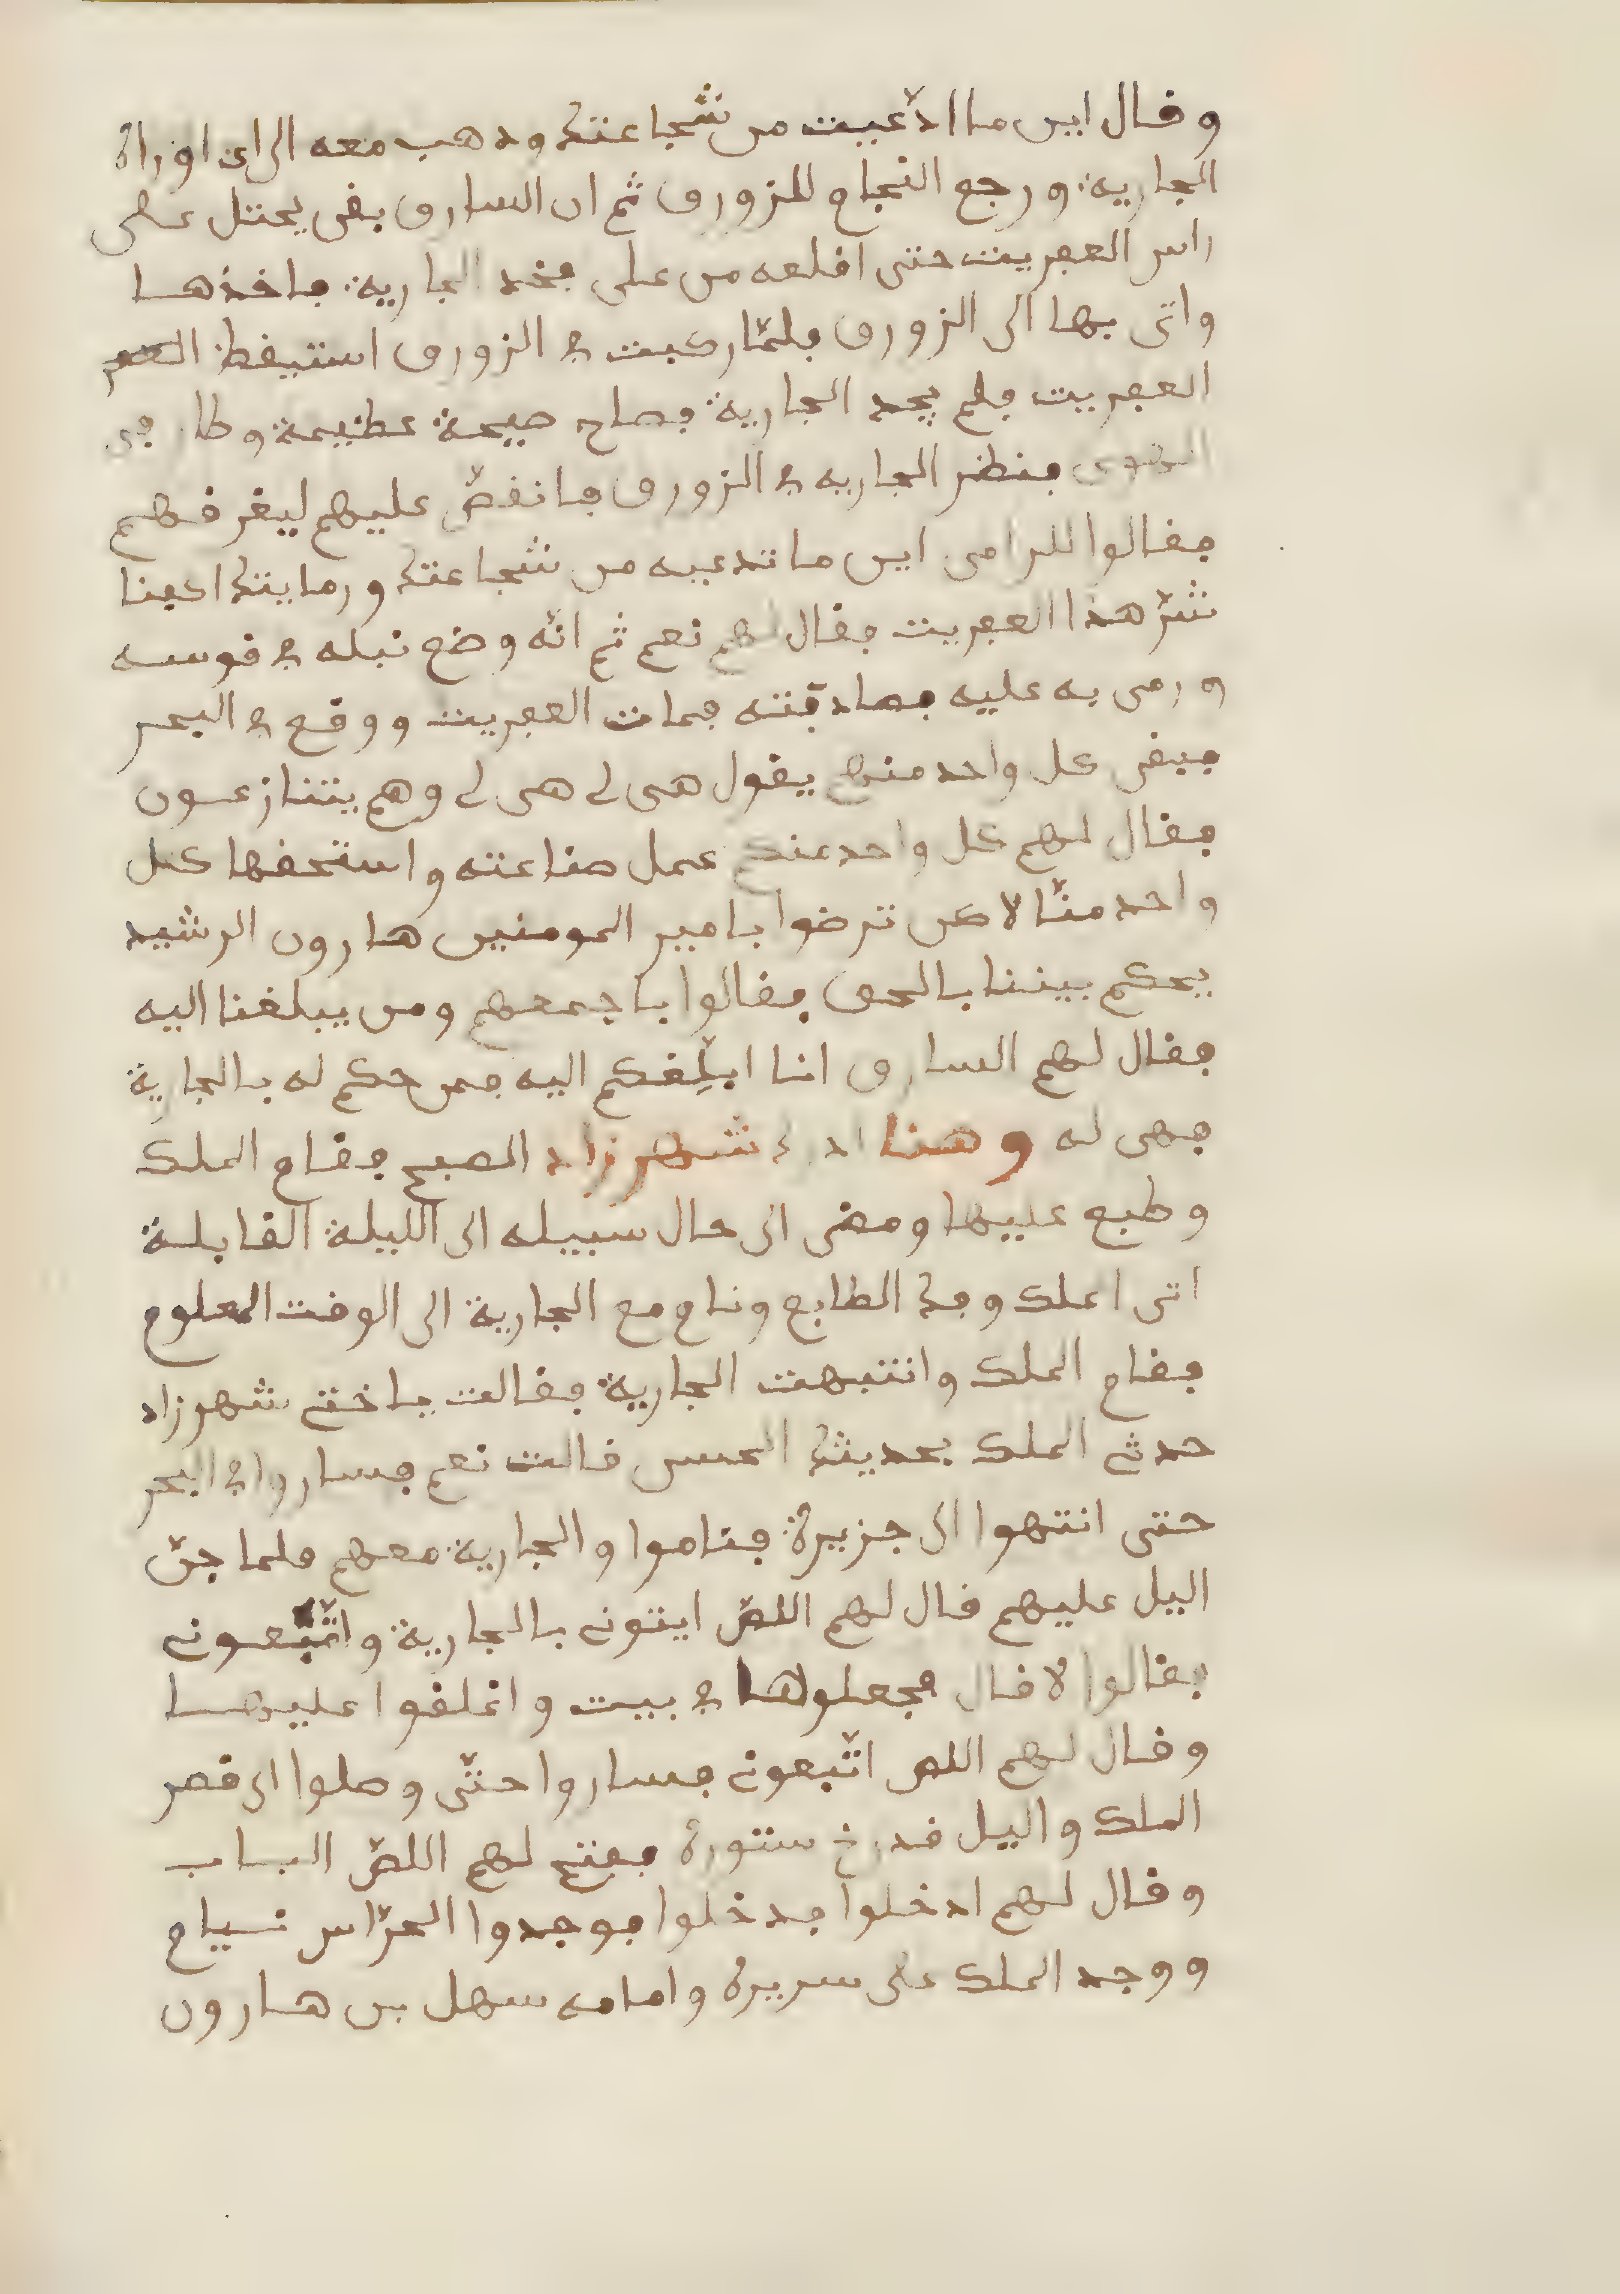 وقال اين ما ادّعيت من شجاعتك ودهب معه الى ان اوراه
الجارية ورجع النجام للزورق ثم ان السارق بقى يحتل على
راس العفريت حتى اقلعه من على فخد الجارية فاخذها
واتى بها الى الزورق فلمّا ركبت في الزورق استيقظ العفر
العفريت فلم يجد الجارية فصاح صيحة عظيمة وطار في
الهوى فنظر الجارية في الزورق فانقضّ عليهم ليغرقهم
فقالوا للرامى اين ما تدعيه من شجاعتك ورمايتك اكفنا
شرّ هذا العفريت فقال لهم نعم ثم انّه وضع نبله في قوسه
ورمى به عليه فصادفته فمات العفريت ووقع في البحر
فبقى كل واحد منهم يقول هى لي هى لي وهم يتنازعون
فقال لهم كل واحد منكم عمل صناعته واستحقها كل
واحد منّا لاكن ترضوا بامير المومنين هارون الرشيد
يحكم بيننا بالحق فقالوا باجمعهم ومن يبلغنا اليه
فقال لهم السارق انا ابلّغكم اليه فمن حكم له بالجارية
فهى له وهنا ادرك شهرزاد الصبح فقام الملك
وطبع عليها ومضى الى حال سبيله الى الليلة القابلة
اتى الملك وفك الطابع ونام مع الجارية الى الوقت المعلوم
فقام الملك وانتبهت الجارية فقالت ياختي شهرزاد
حدثي الملك بحديثك الحسن قالت نعم فساروا في البحر
حتى انتهوا الى جزيرة فناموا والجارية معهم فلما جنّ
اليل عليهم قال لهم اللصّ ايتوني بالجارية واتّبعوني
فقالوا لا قال فجعلوها في بيت واغلقوا عليها
وقال لهم اللص اتّبعوني فساروا حتّى وصلوا الى قصر
الملك واليل قد رخ ستوره ففتح لهم اللصّ الباب
وقال لهم ادخلوا فدخلوا فوجدوا الحرّاس نيام
ووجد الملك على سريره وامامه سهل بن هارون